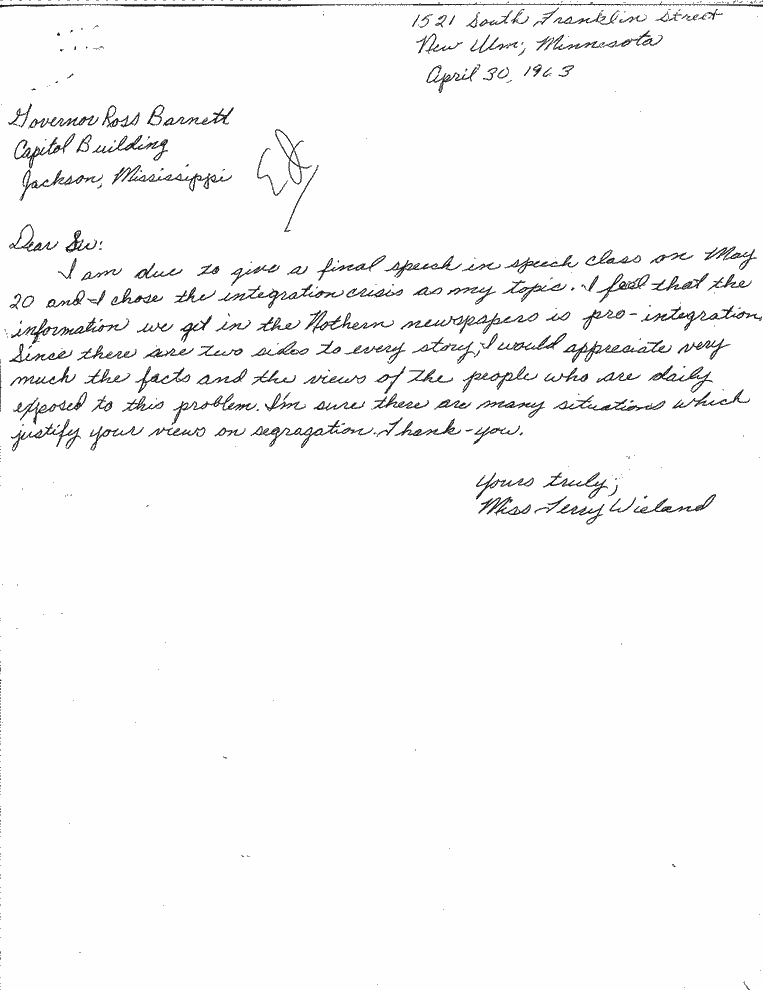 1521 South Franklin Street
New Ulm, Minnesota
April 30, 1963
Governor Ross Barnett
Capitol Building
Jackson, Mississippi
Dear Sir:
I am due to give a final speech in speech class on May
20 and I chose the integration crisis as my topic. I feel that the
information we get in the Nothern newspapers is pro-integration.
Since there are two sides to every story, I would appresiate very
much the facts and the views of the people who are daily
exposed to this problem. I'm sure there are many situations which
justify your views on segragation. Thank-you.
Yours truly,
Miss Terry Wieland